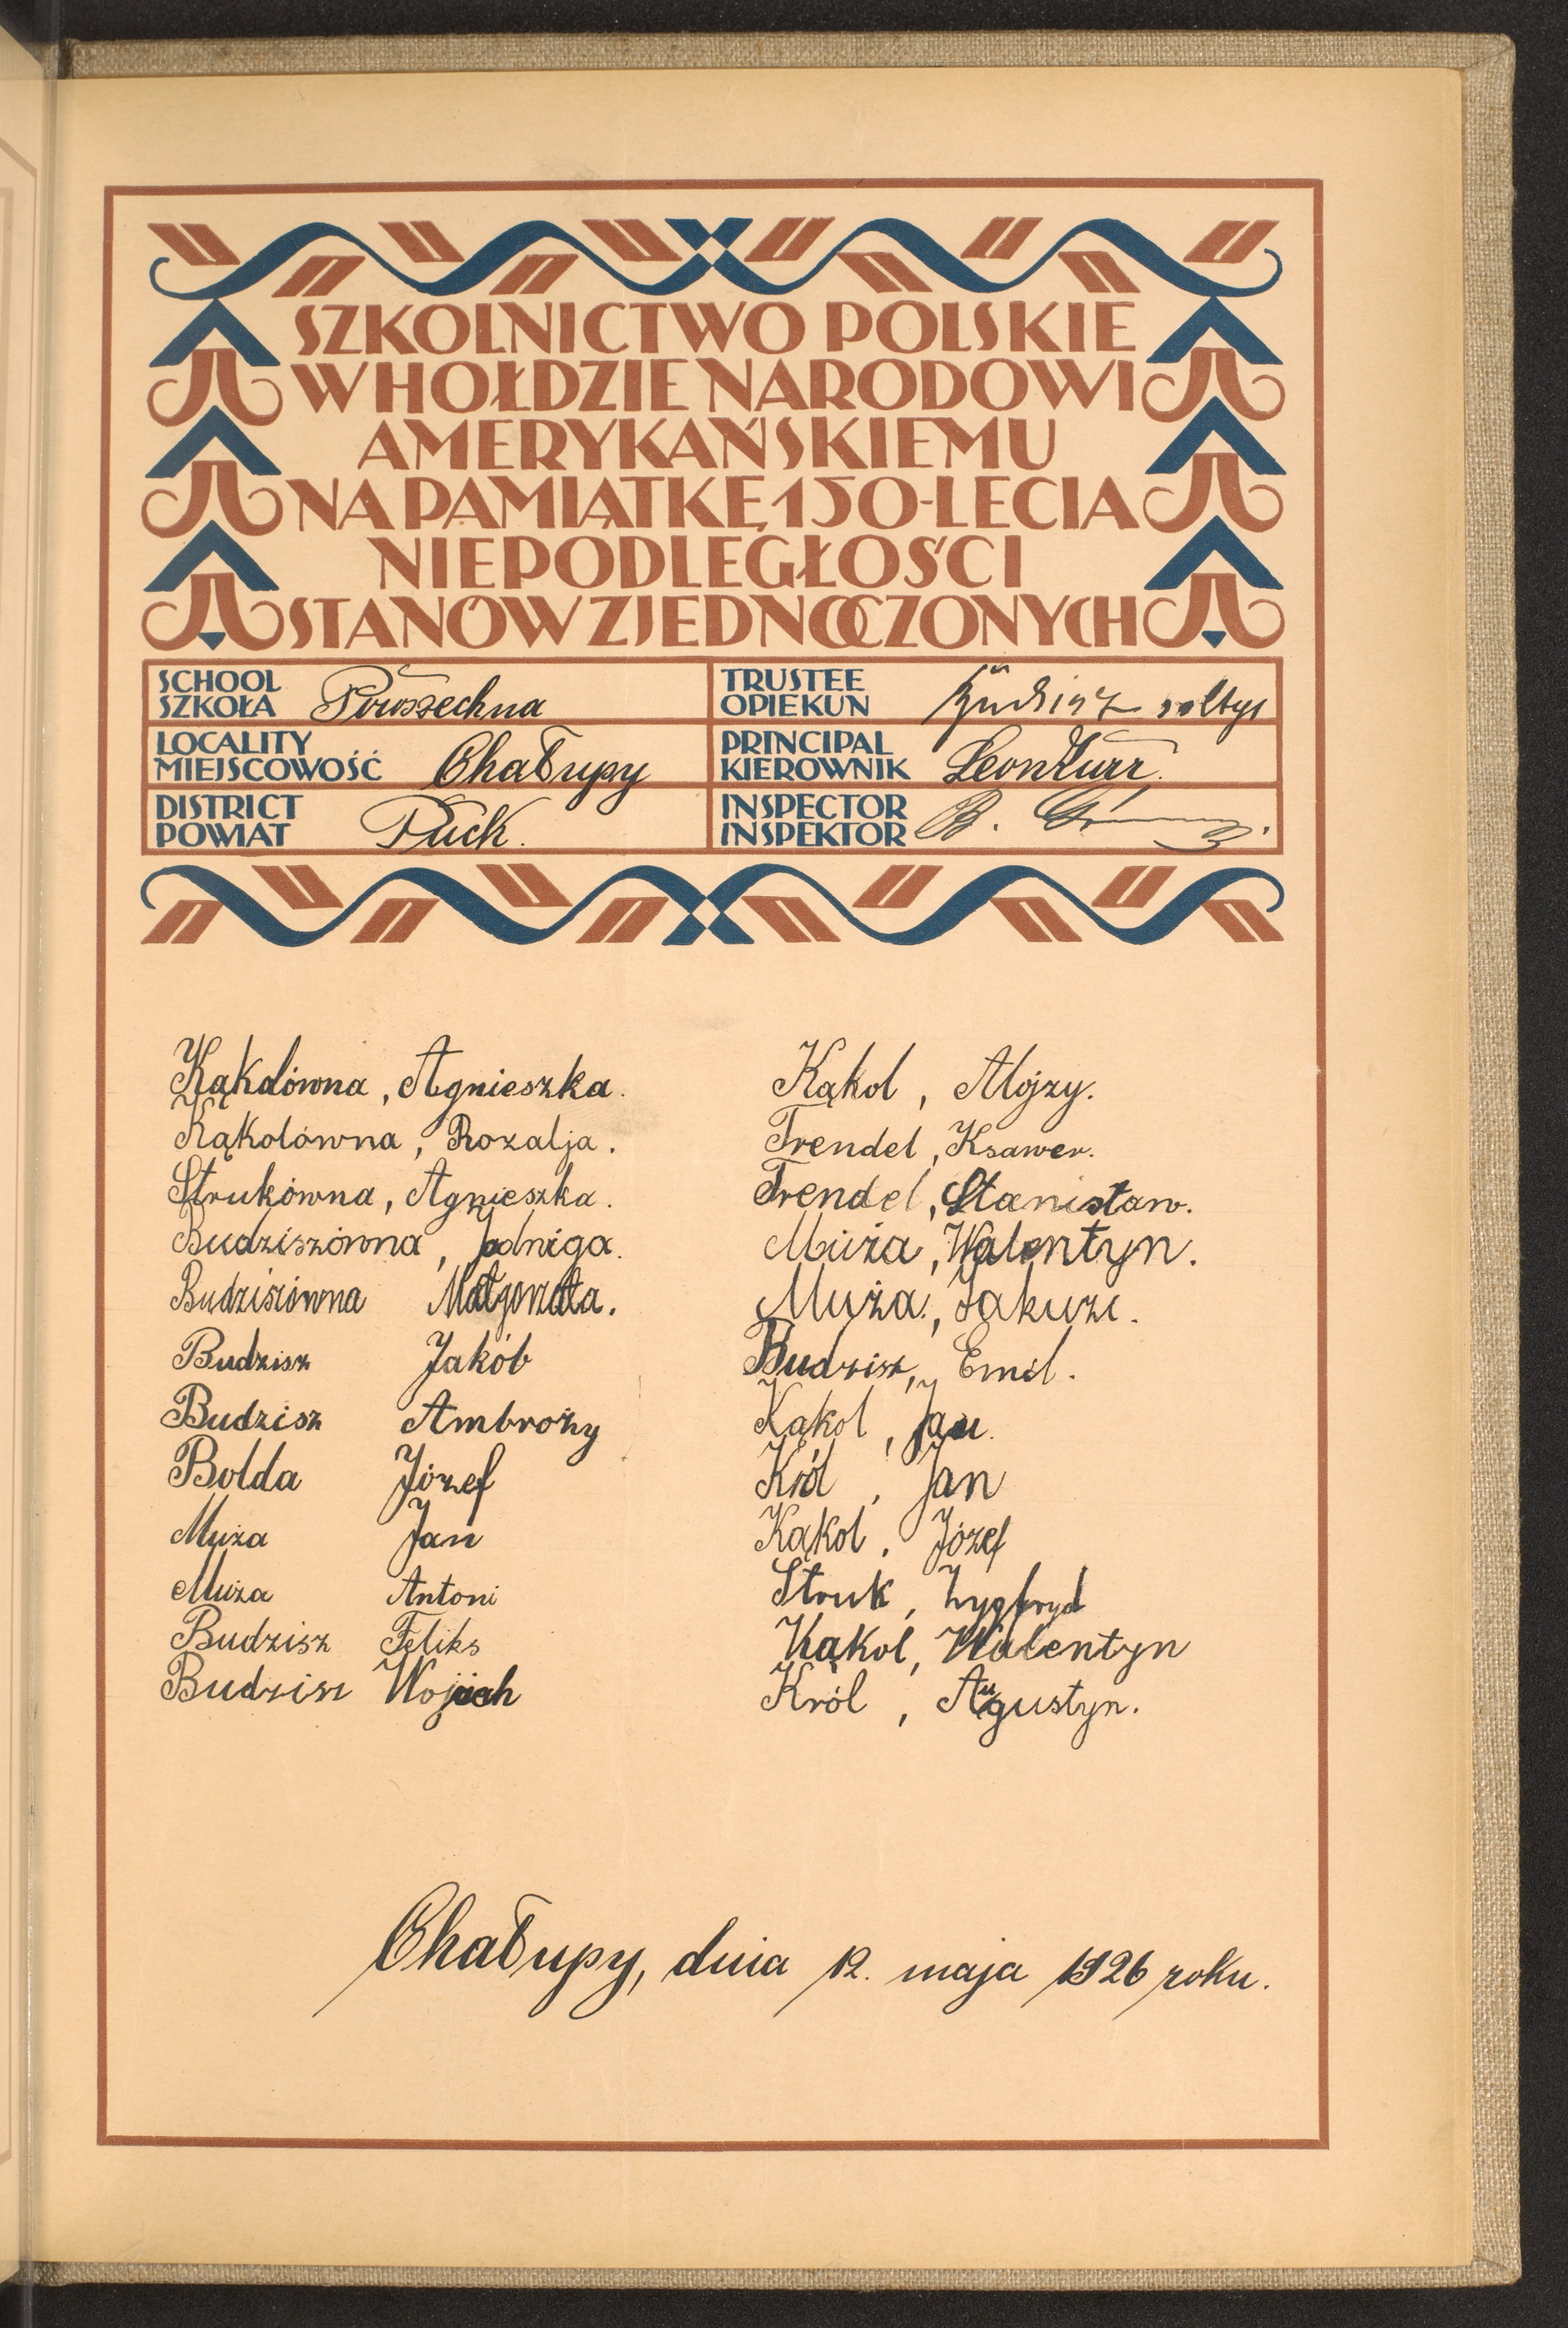 SZKOLNICTWO POLSKIE
W HOŁDZIE NARODOWI
AMERYKAŃSKIEMU
NA PAMIĄTKĘ 150-LECIA
NIEPODLEGŁOŚCI
STANÓW ZJEDNOCZONYCH
SCHOOL
SZKOŁA Powszechna
LOCALITY
MIEJSCOWOŚĆ Chałupy
DISTRICT
POWIAT Puck.
TRUSTEE
OPIEKUN Budzisz soltys
PRINCIPAL
KIEROWNIK Leon Żurr.
INSPECTOR
INSPEKTOR B.
Kąkolówna, Agnieszka.
Kąkolówna, Rozalja.
Strukówna, Agnieszka.
Budziszówna, Jadwiga.
Budziszówna Małgorzata.
Budzisz Jakób
Budzisz Ambroży
Bolda Józef
Muża Jan
Muża Antoni
Budzisz Feliks
Budzisz Wojciech
Kąkol, Alojzy.
Trendel, Ksawer.
Trendel, Stanisław.
Muża, Walentyn.
Muża,
Budzisz, Emil.
Kąkol, Jan.
Król, Jan
Kąkol, Józef
Struk, Zygfryd
Kąkol, Walentyn
Król, Augustyn.
Chałupy, dnia 12. maja 1926 roku.